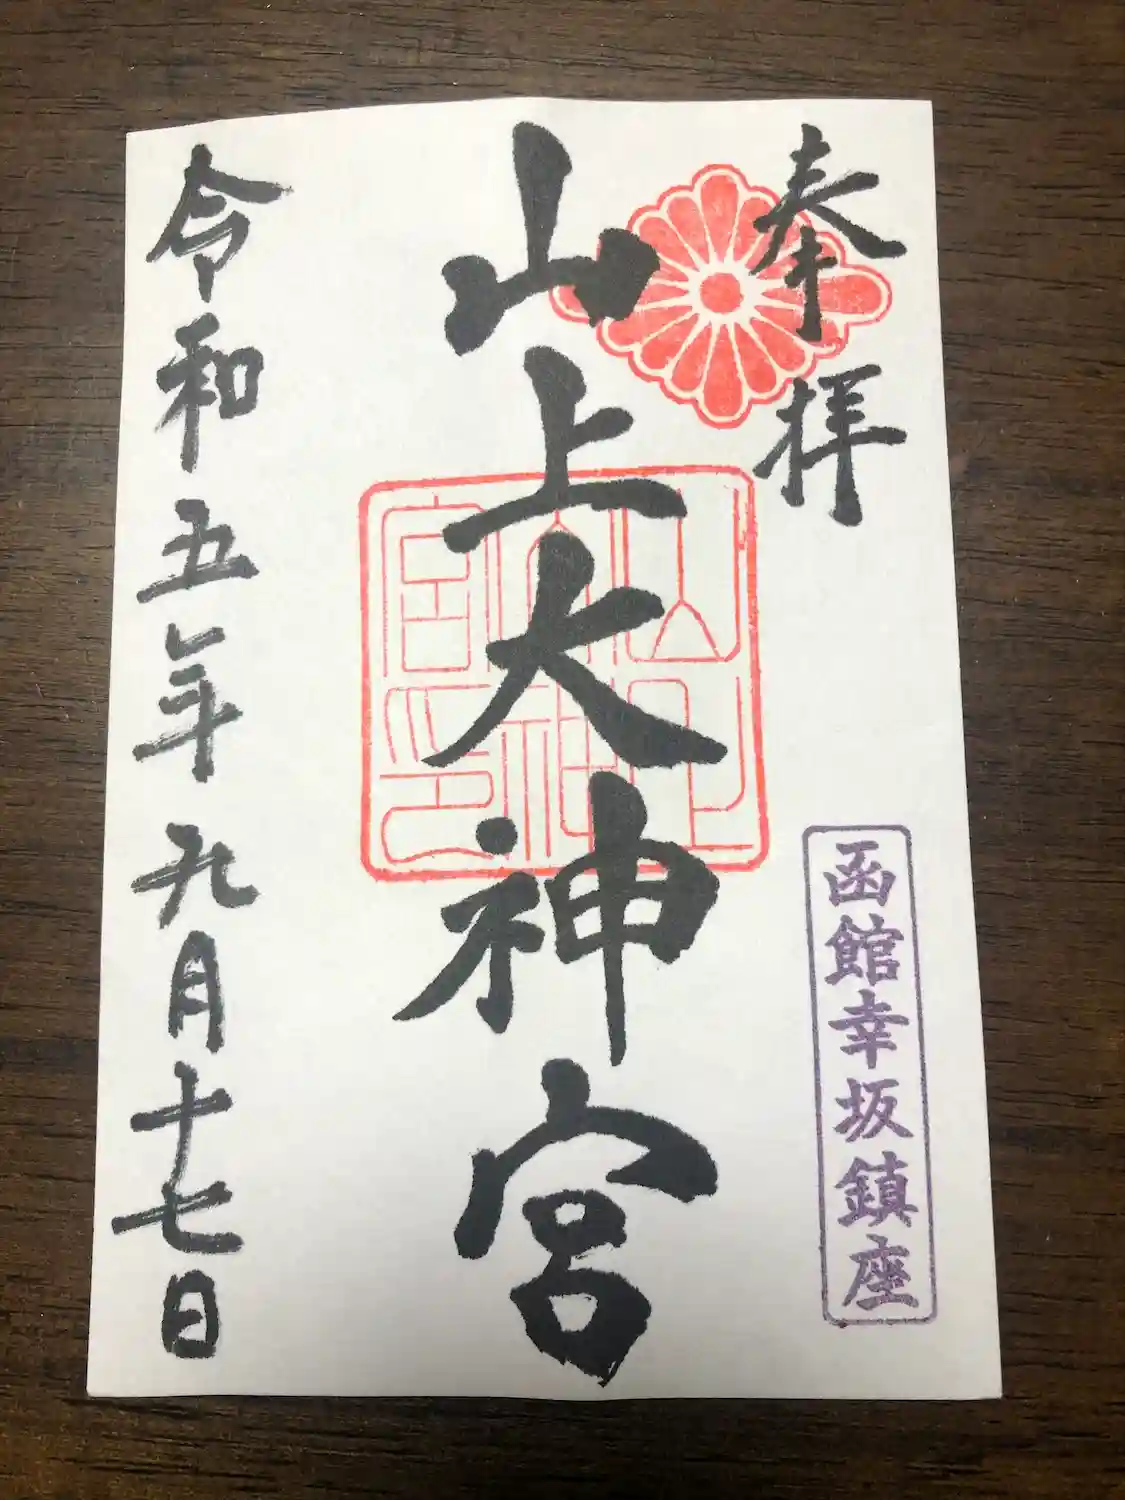 奉拝
函館幸坂鎮座
山上大神宮
山上大神宮印
令和五年九月十七日